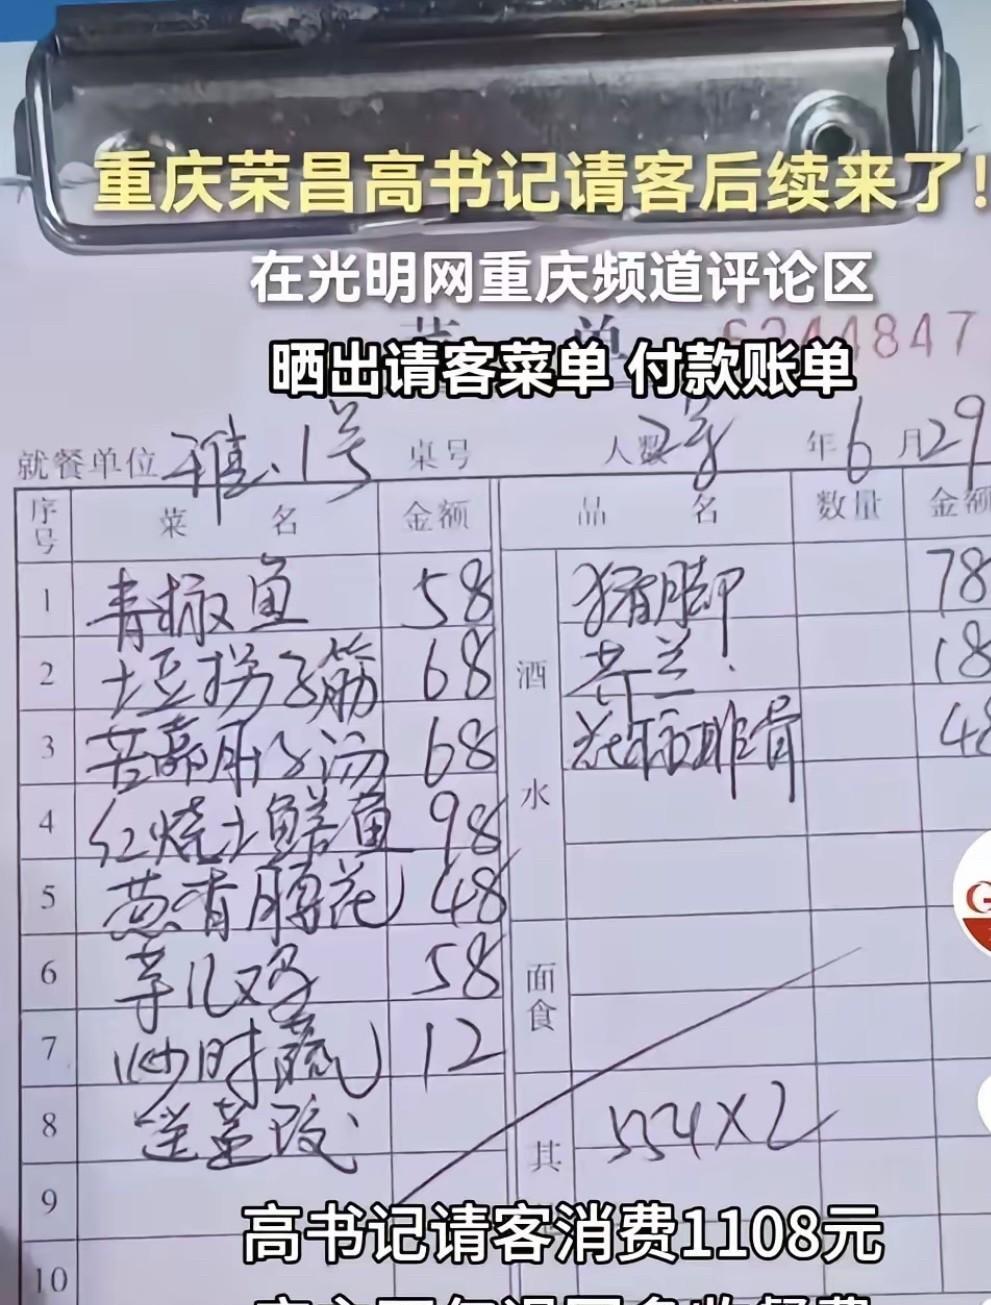 重庆荣昌高书记请客后续来了!
在光明网重庆频道评论区
菜 单 6244847
晒出请客菜单 付款账单
就餐单位 雅.1号 桌号 人数 2号 年6月29
序号 菜 名 金额 品 名 数量 金额
1 青椒鱼 58 猪脚 78
2 土豆拐子筋 68 酒 芥兰 18
3 苦藠肚子汤 68 排骨 48
4 红烧土鳝鱼 98 水
5 葱香腰花 48
6 芋儿鸡 58 面食
7 炒时蔬 12
8 送 其 554×2
9
高书记请客消费1108元
10